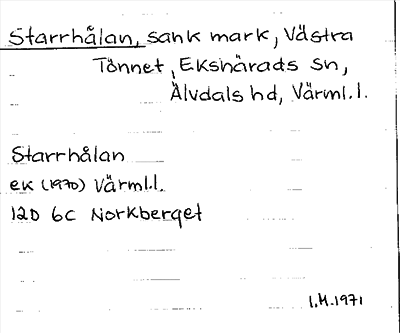 Starrhålan, sank mark, Västra
Tönnet, Ekshärads sn,
Älvdals hd, Värml.l.
Starrhålan
ek (1970) Värml.l.
12D 6c Norkberget
I.H.1971